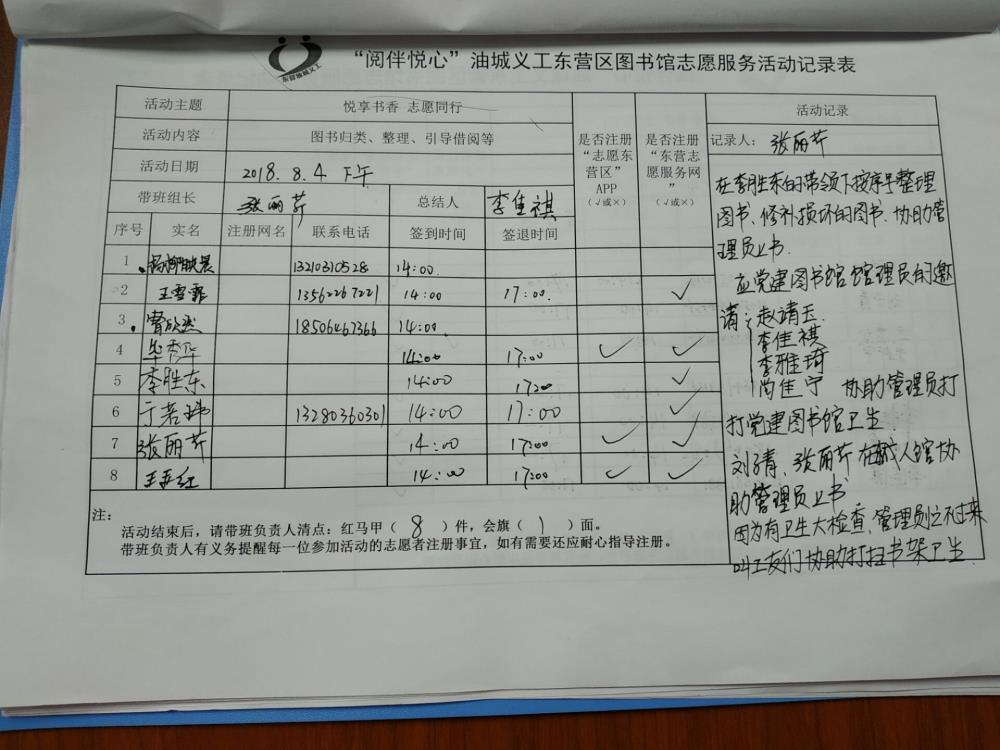 东营油城义工
“阅伴悦心”油城义工东营区图书馆志愿服务活动记录表
活动主题 悦享书香 志愿同行
活动内容 图书归类、整理、引导借阅等
活动日期 2018.8.4 下午
带班组长 张丽芹 总结人 李佳祺
是否注册“志愿东营区”APP（√或×）
是否注册“东营志愿服务网”（√或×）
序号 实名 注册网名 联系电话 签到时间 签退时间
1 13210310528 14:00
2 王雪霏 13562267221 14:00 17:00 ✓
3 18506467366 14:00
4 毕秀华 14:00 17:00 ✓ ✓
5 李胜东 14:00 17:00 ✓
6 于若玮 13280360301 14:00 17:00 ✓
7 张丽芹 14:00 17:00 ✓ ✓
8 王亚红 14:00 17:00 ✓ ✓
注：
活动结束后，请带班负责人清点：红马甲（ 8 ）件，会旗（ 1 ）面。
带班负责人有义务提醒每一位参加活动的志愿者注册事宜，如有需要还应耐心指导注册。
活动记录
记录人：张丽芹
在李胜东的带领下按序号整理
图书、修补损坏的图书、协助管
理员上书.
应党建图书馆馆管理员的邀
请：赵靖玉.
李佳祺
李雅琦
尚佳宁 协助管理员打
打党建图书馆卫生.
刘子青、张丽芹在成人馆协
助管理员上书
因为有卫生大检查,管理员忙不过来
叫工友们协助打扫书架卫生.